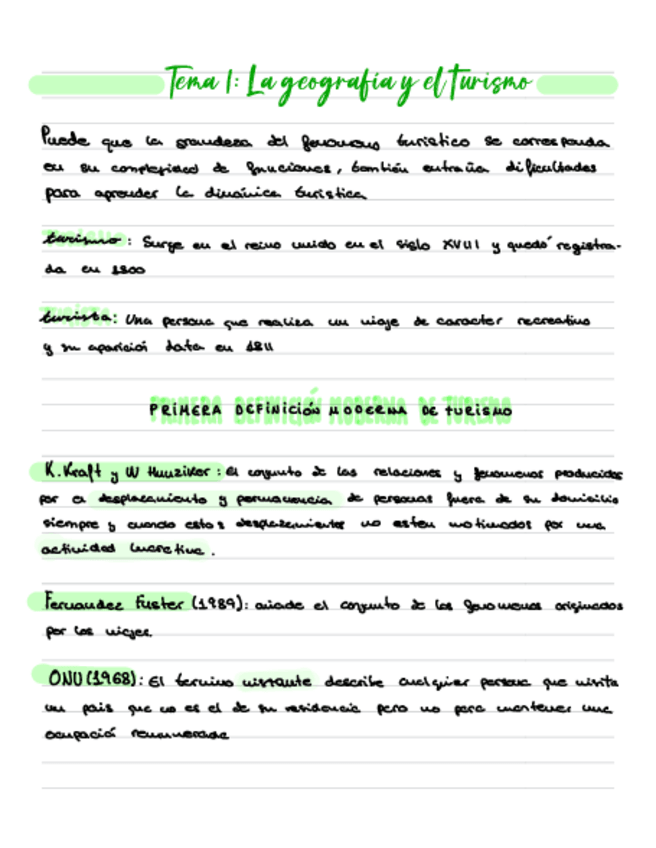 Tema 1: La geografía y el turismo
Puede que la grandeza del fenomeno turistico se corresponda
en su complejidad de funciones, también entraña dificultades
para aprender la dinámica turistica
turismo: Surge en el reino unido en el siglo XVIII y quedó registra-
da en 1800
turista: Una persona que realiza un viaje de caracter recreativo
y su aparición data en 1811
PRIMERA DEFINICIÓN MODERNA DE TURISMO
K. Kraft y W Hunziker: el conjunto de las relaciones y fenomenos producidos
por el desplazamiento y permanencia de personas fuera de su domicilio
siempre y cuando estos desplazamientos no esten motivados por una
actividad lucrativa.
Fernandez Fuster (1989): añade el conjunto de los fenomenos originados
por los viajes.
ONU (1968): El termino visitante describe cualquier persona que visita
un pais que no es el de su residencia pero no para mantener una
ocupació remunerada